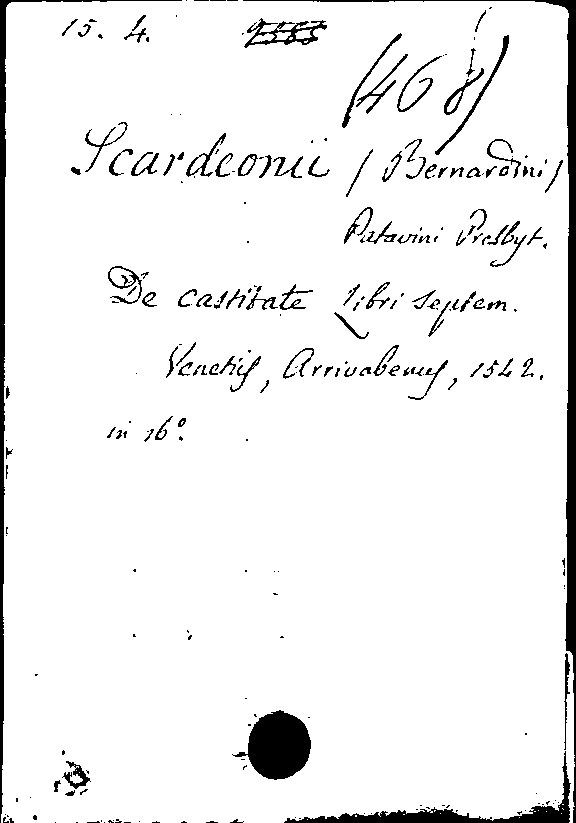 15. 4.
(468)
Scardeonii / Bernardini /
Patavini Presbyt.
De castitate Libri septem.
Venetiis, Arrivabenus, 1542.
in 16°.